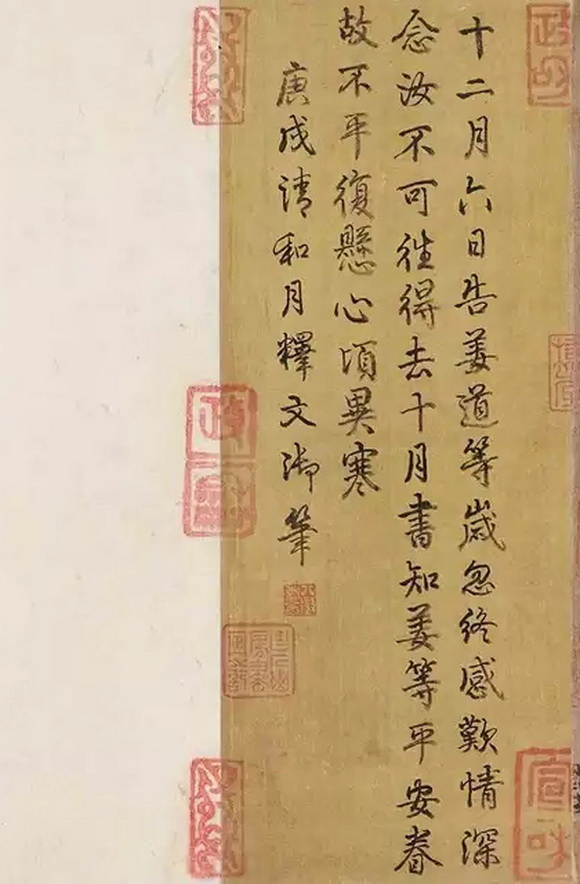 十二月六日告姜道等歲忽終感歎情深
念汝不可往得去十月書知姜等平安眷
故不平復懸心頃異寒
庚戌清和月釋文御筆
政和
宣和
政和